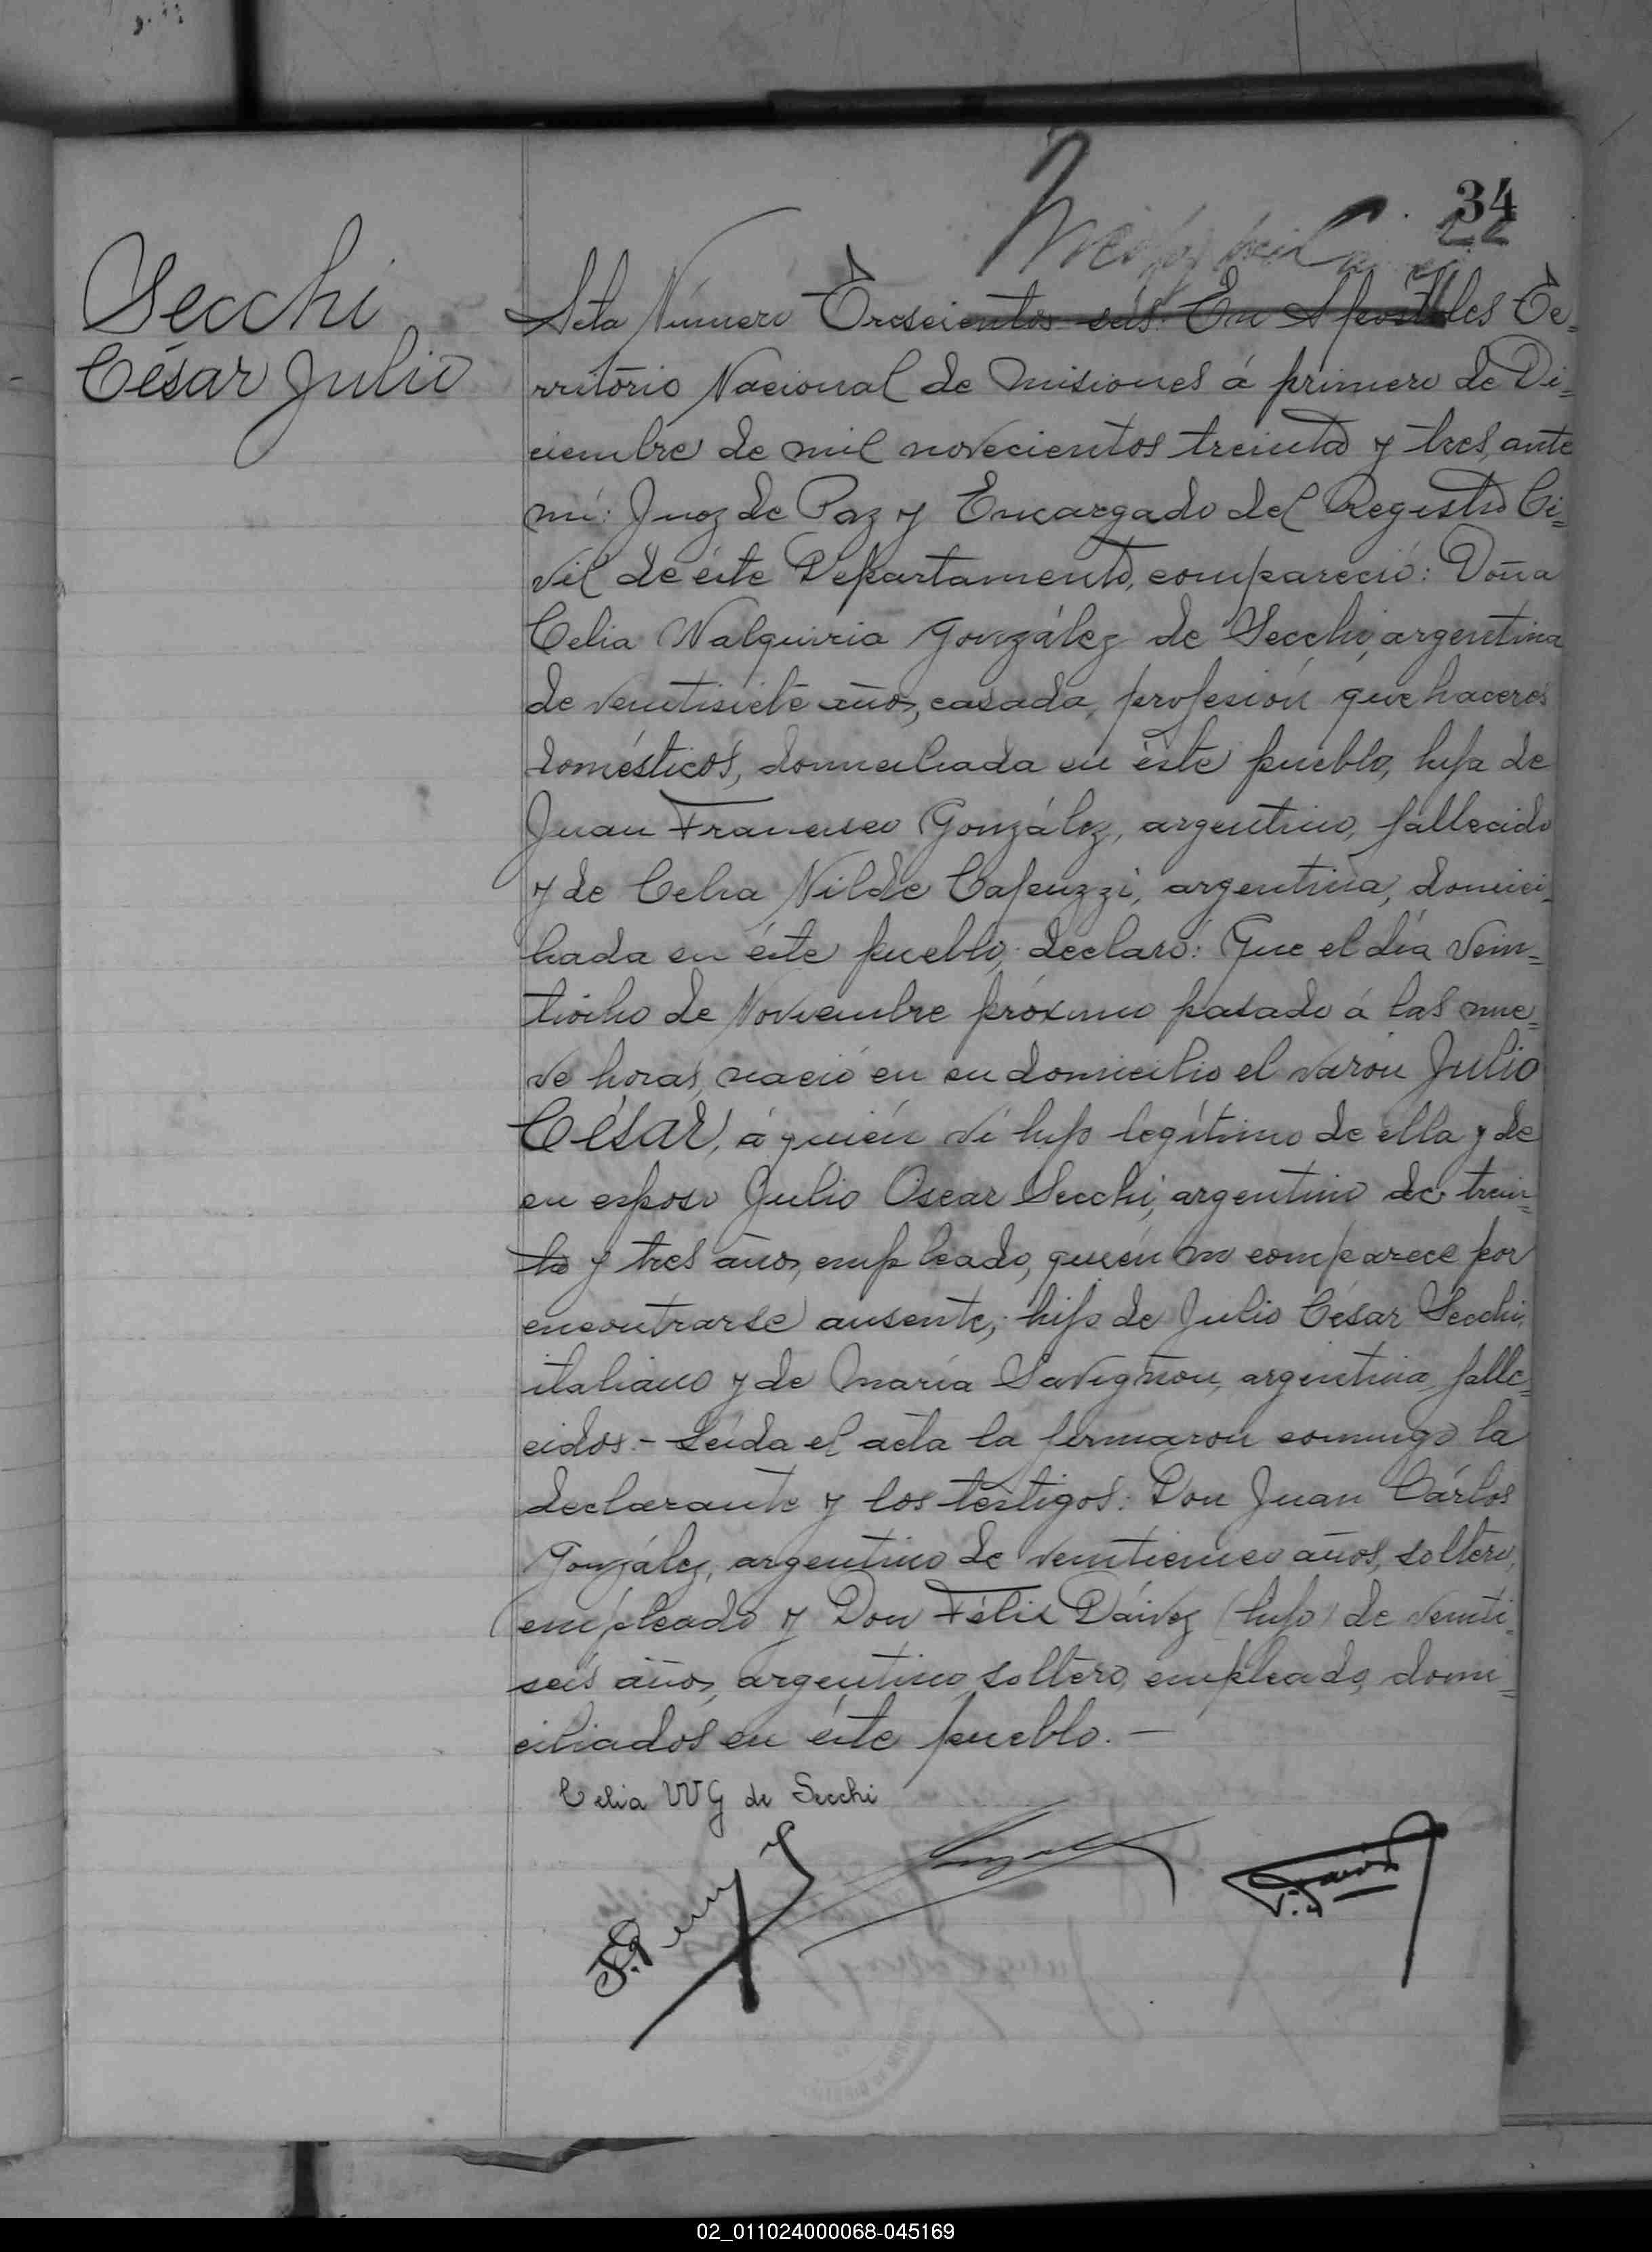 34
Secchi
César Julio
Acta Número Trescientos seis. En Apóstoles Te=
rritório Nacional de Misiones á primero de Di=
ciembre de mil novecientos treinta y tres, ante
mí: Juez de Paz y Encargado del Registro Ci=
vil de éste Departamento, compareció: Doña
Celia Walquiria González de Secchi, argentina
de veintisiete años, casada, profesión quehaceres
domésticos, domiciliada en éste pueblo, hija de
Juan Francisco González, argentino, fallecido
y de Celia Nilde Capuzzi, argentina, domici=
liada en éste pueblo, declaró: Que el día vein=
tiocho de Noviembre próximo pasado á las nue=
ve horas, nació en su domicilio el varón Julio
César, á quién ví hijo legítimo de ella y de
su esposo Julio Oscar Secchi, argentino de trein=
ta y tres años, empleado, quién no comparece por
encontrarse ausente; hijo de Julio César Secchi,
italiano y de María Savignon, argentina, falle=
cidos.- Leída el acta la firmaron conmigo la
declarante y los testigos: Don Juan Cárlos
González, argentino de veinticinco años, soltero,
empleado y Don Félix Dáivez (hijo) de veinti=
seis años, argentino, soltero, empleado, domi=
ciliados en éste pueblo.—
Celia W G de Secchi
02_011024000068-045169